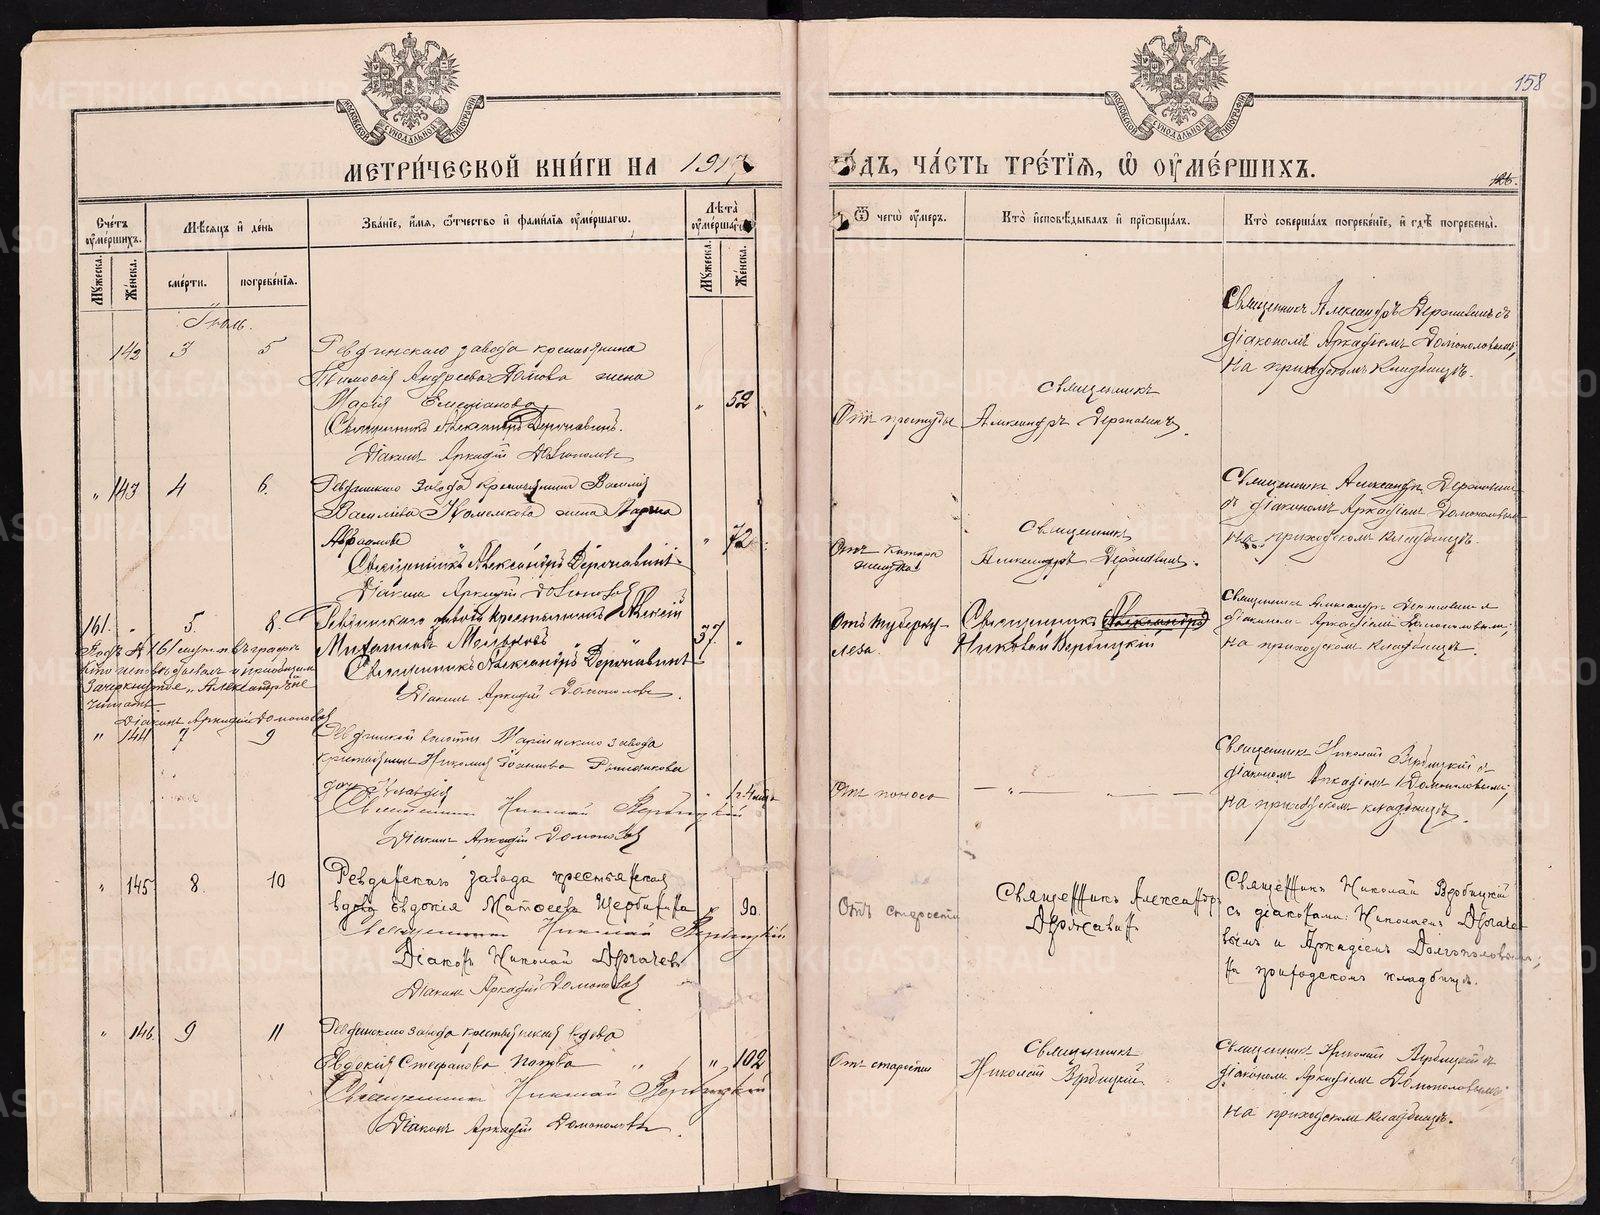 158
МОСКОВСКОЙ СѴНОДАЛЬНОЙ ТИПОГРАФІИ
МОСКОВСКОЙ СѴНОДАЛЬНОЙ ТИПОГРАФІИ
МЕТРИ́ЧЕСКОЙ КНИ́ГИ НА 1917
ГО́ДЪ, ЧА́СТЬ ТРЕ́ТІѦ, Ѡ҆ ОУ҆МЕ́РШИХЪ.
Сче́тъ оу҆ме́ршихъ.
Мꙋ́жеска.
Же́нска.
Мѣ́сѧцъ и҆ де́нь
сме́рти.
погребе́нїѧ.
Зва́нїе, и҆́мѧ, ѻ҆́тчество и҆ фами́лїѧ оу҆ме́ршагѡ.
Лѣ́та оу҆ме́ршагѡ
Мꙋ́жеска.
Же́нска.
Ѿ чегѡ̀ оу҆́меръ.
Кто̀ и҆сповѣ́дывалъ и҆ прїѡбща́лъ.
Кто̀ соверша́лъ погребе́нїе, и҆ гдѣ̀ погребены̀.
Іюль.
142 3 5 Ревдинскаго завода крестьянина
Андреева жена
Марія Емеліанова „ 52
Священникъ Александръ Державинъ.
Діаконъ Аркадій Долгополовъ
Отъ простуды
Священникъ
Александръ Державинъ.
Священникъ Александръ Державинъ съ
діакономъ Аркадіемъ Долгополовымъ;
на приходскомъ кладбищѣ.
„ 143 4 6. Ревдинскаго завода крестьянина Василія
Васильева жена
„ 72
Священникъ Александръ Державинъ.
Діаконъ Аркадій Долгополовъ
Отъ катара
желудка
Священникъ
Александръ Державинъ.
Священникъ Александръ Державинъ
съ діакономъ Аркадіемъ Долгополовымъ
на приходскомъ кладбищѣ.
161. „ 5. 8. Ревдинскаго завода крестьянинъ Алексій
Михаиловъ 37. „
Священникъ Александръ Державинъ
Діаконъ Аркадій Долгополовъ.
Подъ № 161 сущ. въ графѣ
кто исповѣдывалъ и пріобщалъ
зачеркнутое „Александръ" не
читать
Діаконъ Аркадій Долгополовъ
Отъ туберку-
леза.
Священникъ Александръ
Николай Вербицкій
Священникъ Александръ Державинъ съ
діакономъ Аркадіемъ Долгополовымъ;
на приходскомъ кладбищѣ.
„ 144 7 9 Ревдинской волости Маріинскаго завода
крестьянина Николая
дочь Клавдія
Священникъ Николай Вербицкій
Діаконъ Аркадій Долгополовъ
Отъ поноса
— „ — „ —
Священникъ Николай Вербицкій съ
діакономъ Аркадіемъ Долгополовымъ;
на приходскомъ кладбищѣ.
„ 145 8. 10 Ревдинскаго завода крестьянская
вдова Евдокія Матѳеева Щербинина „ 90.
Священникъ Николай Вербицкій
Діаконъ Николай Дергачевъ
Діаконъ Аркадій Долгополовъ
Отъ старости
Священникъ Александръ
Державинъ
Священникъ Николай Вербицкій
съ діаконами: Николаемъ Дергаче-
вымъ и Аркадіемъ Долгополовымъ;
на приходскомъ кладбищѣ.
„ 146. 9 11 Ревдинскаго завода крестьянская вдова
Евдокія Стефанова „ „ 102
Священникъ Николай Вербицкій
Діаконъ Аркадій Долгополовъ.
Отъ старости
Священникъ
Николай Вербицкій
Священникъ Николай Вербицкій съ
діакономъ Аркадіемъ Долгополовымъ
на приходскомъ кладбищѣ.